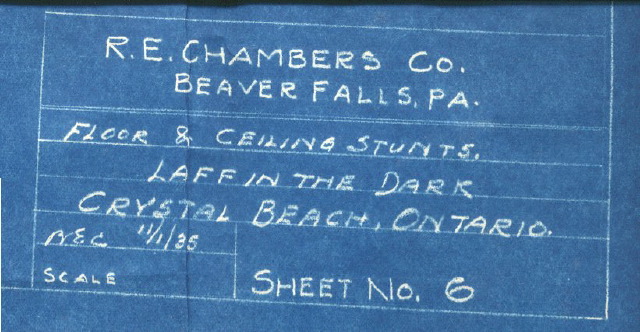 R.E. CHAMBERS CO.
BEAVER FALLS, PA.
FLOOR & CEILING STUNTS.
LAFF IN THE DARK
CRYSTAL BEACH, ONTARIO.
11/1/35
SCALE
SHEET NO. 6